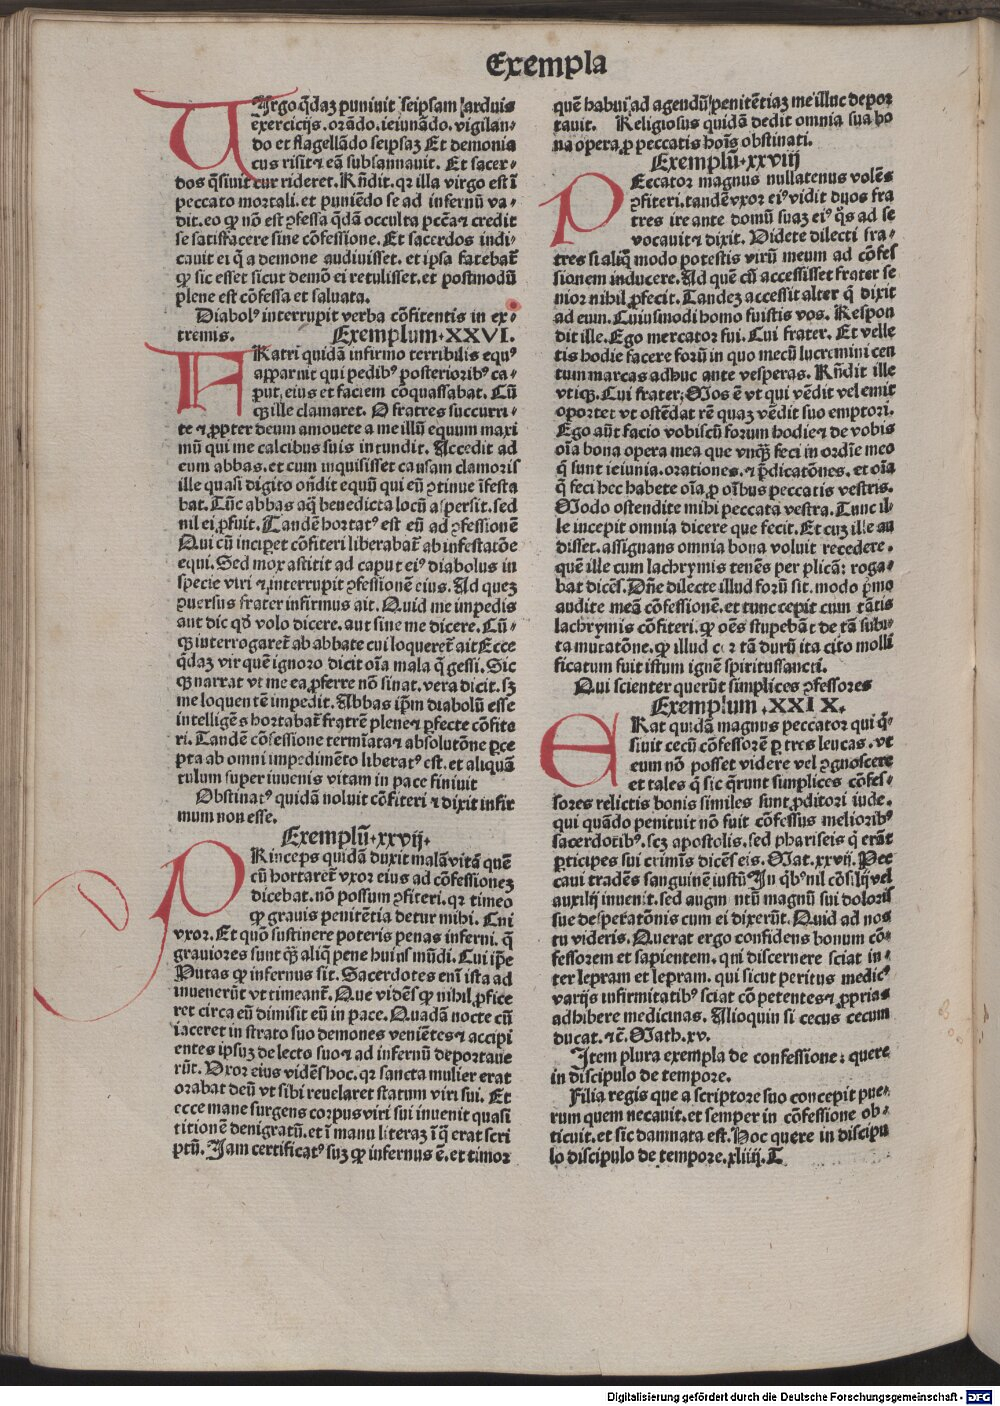 Exempla
UIrgo q̄daz puniuit seipsam arduis
exercicijs. orādo. ieiunādo. vigilan-
do et flagellādo seipsaz Et demonia
cus risit ⁊ eā subsannauit. Et sacer-
dos q̄siuit cur rideret. Rn̄dit. qꝛ illa virgo est ī
peccato mortali. et puniēdo se ad infernū va-
dit. eo ꝙ nō est ꝯfessa q̄dā occulta pctā ⁊ credit
se satisfacere sine cōfessione. Et sacerdos indi-
cauit ei q̄ a demone audiuisset. et ipsa fatebat᷑
ꝙ sic esset sicut demō ei retulisset. et postmodū
plene est cōfessa et saluata.
Diabolꝰ interrupit verba cōfitentis in ex-
tremis. Exemplum. XXVI.
FRatri quidā infirmo terribilis equꝰ
apparuit qui pedibꝰ posterioribꝰ ca-
put, eius et faciem cōquassabat. Cū
qꝫ ille clamaret. O fratres succurri-
te ⁊ ꝓpter deum amouete a me illū equum maxi
mū qui me calcibus suis intundit. Accedit ad
eum abbas. et cum inquisisset causam clamoris
ille quasi digito on̄dit equū qui eū ꝯtinue īfesta
bat. Tūc abbas aq̄ benedicta locū aspersit. sed
nil ei ꝓfuit. Tandē hortatꝰ est eū ad ꝯfessionē
Qui cū inciperet cōfiteri liberabat᷑ ab infestatōe
equi. Sed mox astitit ad caput eiꝰ diabolus in
specie viri ⁊ interrupit ꝯfessionē eius. Ad quez
ꝯuersus frater infirmus ait. Quid me impedis
aut dic qd̄ volo dicere. aut sine me dicere. Cū-
qꝫ interrogaret᷑ ab abbate cui loqueret᷑ ait Ecce
q̄daz vir quē ignoro dicit oīa mala q̄ gessi. Sic
qꝫ narrat vt me ea ꝓferre nō sinat. vera dicit. sꝫ
me loquentē impedit. Abbas ip̄m diabolū esse
intelligēs hortabat᷑ fratrē plene ⁊ ꝑfecte cōfite
ri. Tandē cōfessione termīata ⁊ absolutōne ꝑce
pta ab omni impedimēto liberatꝰ est. et aliquā
tulum super iuuenis vitam in pace finiuit
Obstinatꝰ quidā noluit cōfiteri ⁊ dixit infir
mum non esse.
Exemplū. xxvij.
PRinceps quidā duxit malā vitā quē
cū hortaret᷑ vxor eius ad cōfessionez
dicebat. nō possum ꝯfiteri. qꝛ timeo
ꝙ grauis penitētia detur mihi. Cui
vxor. Et quō sustinere poteris penas inferni. q̄
grauiores sunt qꝫ aliq̄ pene huiꝰ mūdi. Cui ip̄e
Putas ꝙ infernus sit. Sacerdotes enī ista ad
inuenerūt vt timeant᷑. Que vidēs ꝙ nihil ꝓfice
ret circa eū dimisit eū in pace. Quadā nocte cū
iaceret in strato suo demones veniētes ⁊ accipi
entes ipsuz de lecto suo ⁊ ad infernū deportaue
rūt. Uxor eius vidēs hoc. qꝛ sancta mulier erat
orabat deū vt sibi reuelaret statum viri sui. Et
ecce mane surgens corpus viri sui inuenit quasi
titionē denigratū. et ī manu literaz ī q̄ erat scri
ptū. Iam certificatꝰ suꝫ ꝙ infernus ē. et timor
quē habui ad agendū penitētiaz me illuc depor
tauit. Religiosus quidā dedit omnia sua bo
na opera ꝓ peccatis hoīs obstinati.
Exemplū. xxviij
PEccator magnus nullatenus volēs
ꝯfiteri. tandē vxor eiꝰ vidit duos fra
tres ire ante domū suaz eiꝰ q̄s ad se
vocauit ⁊ dixit. Videte dilecti fra-
tres si aliq̄ modo potestis virū meum ad cōfes
sionem inducere. Ad quē cū accessisset frater se
nior nihil ꝓfecit. Tandez accessit alter q̄ dixit
ad eum. Cuiusmodi homo fuistis vos. Respon
dit ille. Ego mercator fui. Cui frater. Et velle
tis hodie facere forū in quo mecū lucremini cen
tum marcas adhuc ante vesperas. Rn̄dit ille
vtiqꝫ. Cui frater; Mos ē vt qui vēdit vel emit
oportet vt ostēdat rē quaz vēdit suo emptori.
Ego aūt facio vobiscū forum hodie ⁊ de vobis
oīa bona opera mea que vnqꝫ feci in ordīe meo
q̄ sunt ieiunia. orationes. ⁊ p̄dicatōnes. et oīa
q̄ feci hec habete oīa ꝓ oībus peccatis vestris.
Modo ostendite mihi peccata vestra. Tunc il-
le incepit omnia dicere que fecit. Et cuz ille au
disset. assignans omnia bona voluit recedere.
quē ille cum lachrymis tenēs per plicā: roga-
bat dicēs. Dn̄e dilecte illud forū sit. modo p̄mo
audite meā cōfessionē. et tunc cepit cum tātis
lachrymis cōfiteri. ꝙ oēs stupebāt de tā subi-
ta mutatōne. ꝙ illud cor tā durū ita cito molli
ficatum fuit istum ignē spiritussancti.
Qui scienter querūt simplices ꝯfessores
Exemplum. XXIX.
ERat quidā magnus peccator qui q̄-
siuit cecū cōfessorē ꝑ tres leucas. vt
eum nō posset videre vel ꝯgnoscere
et tales q̄ sic q̄runt simplices cōfes-
sores relictis bonis similes sunt ꝓditori iude.
qui quādo penituit nō fuit cōfessus melioribꝰ
sacerdotibꝰ. scz apostolis. sed phariseis q̄ erāt
ꝑticipes sui crimīs dicēs eis. Mat. xxvij. Pec
caui tradēs sanguinē iustū In qꝰ nil cōsilij vel
auxilij inuenit. sed augmentū magnū sui doloris
sue desperatōnis cum ei dixerūt. Quid ad nos
tu videris. Querat ergo confidens bonum cō-
fessorem et sapientem. qui discernere sciat in-
ter lepram et lepram. qui sicut peritus medicꝰ
varijs infirmitatibꝰ sciat cōpetentes ⁊ ꝓprias
adhibere medicinas. Alioquin si cecus cecum
ducat. ⁊c̄. Math. xv.
Item plura exempla de confessione: quere
in discipulo de tempore.
Filia regis que a scriptore suo concepit pue-
rum quem necauit. et semper in cōfessione ob-
ticuit. et sic damnata est. Hoc quere in discipu
lo discipulo de tempore. xliiij. T
Digitalisierung gefördert durch die Deutsche Forschungsgemeinschaft - DFG